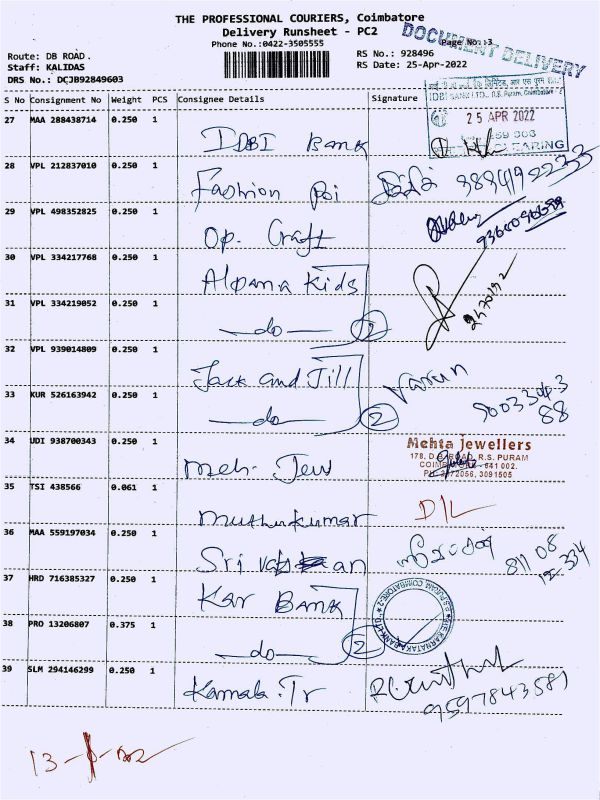 THE PROFESSIONAL COURIERS, Coimbatore
Delivery Runsheet - PC2
Phone No.:0422-3505555
DOCUMENT DELIVERY
Page No.:3
Route: DB ROAD.
Staff: KALIDAS
DRS No.: DCJB92849603
RS No.: 928496
RS Date: 25-Apr-2022
S No Consignment No Weight PCS Consignee Details Signature
25 APR 2022
CLEARING
27 MAA 288438714 0.250 1
IDBI Bank
28 VPL 212837010 0.250 1
Fashion
29 VPL 498352825 0.250 1
Op. Craft
30 VPL 334217768 0.250 1
Alpana Kids
31 VPL 334219052 0.250 1
do 2
32 VPL 939014809 0.250 1
Jack and Jill Varun
33 KUR 526163942 0.250 1
do 2
88
34 UDI 938700343 0.250 1
Meh. Jew
Mehta Jewellers
178, D.B. ROAD, R.S. PURAM
COIMBATORE - 641 002.
35 TSI 438566 0.061 1
Muthukumar D/L
36 MAA 559197034 0.250 1
Sri
37 HRD 716385327 0.250 1
Kar Bank
38 PRO 13206807 0.375 1
do 2
39 SLM 294146299 0.250 1
Kamala. Tr